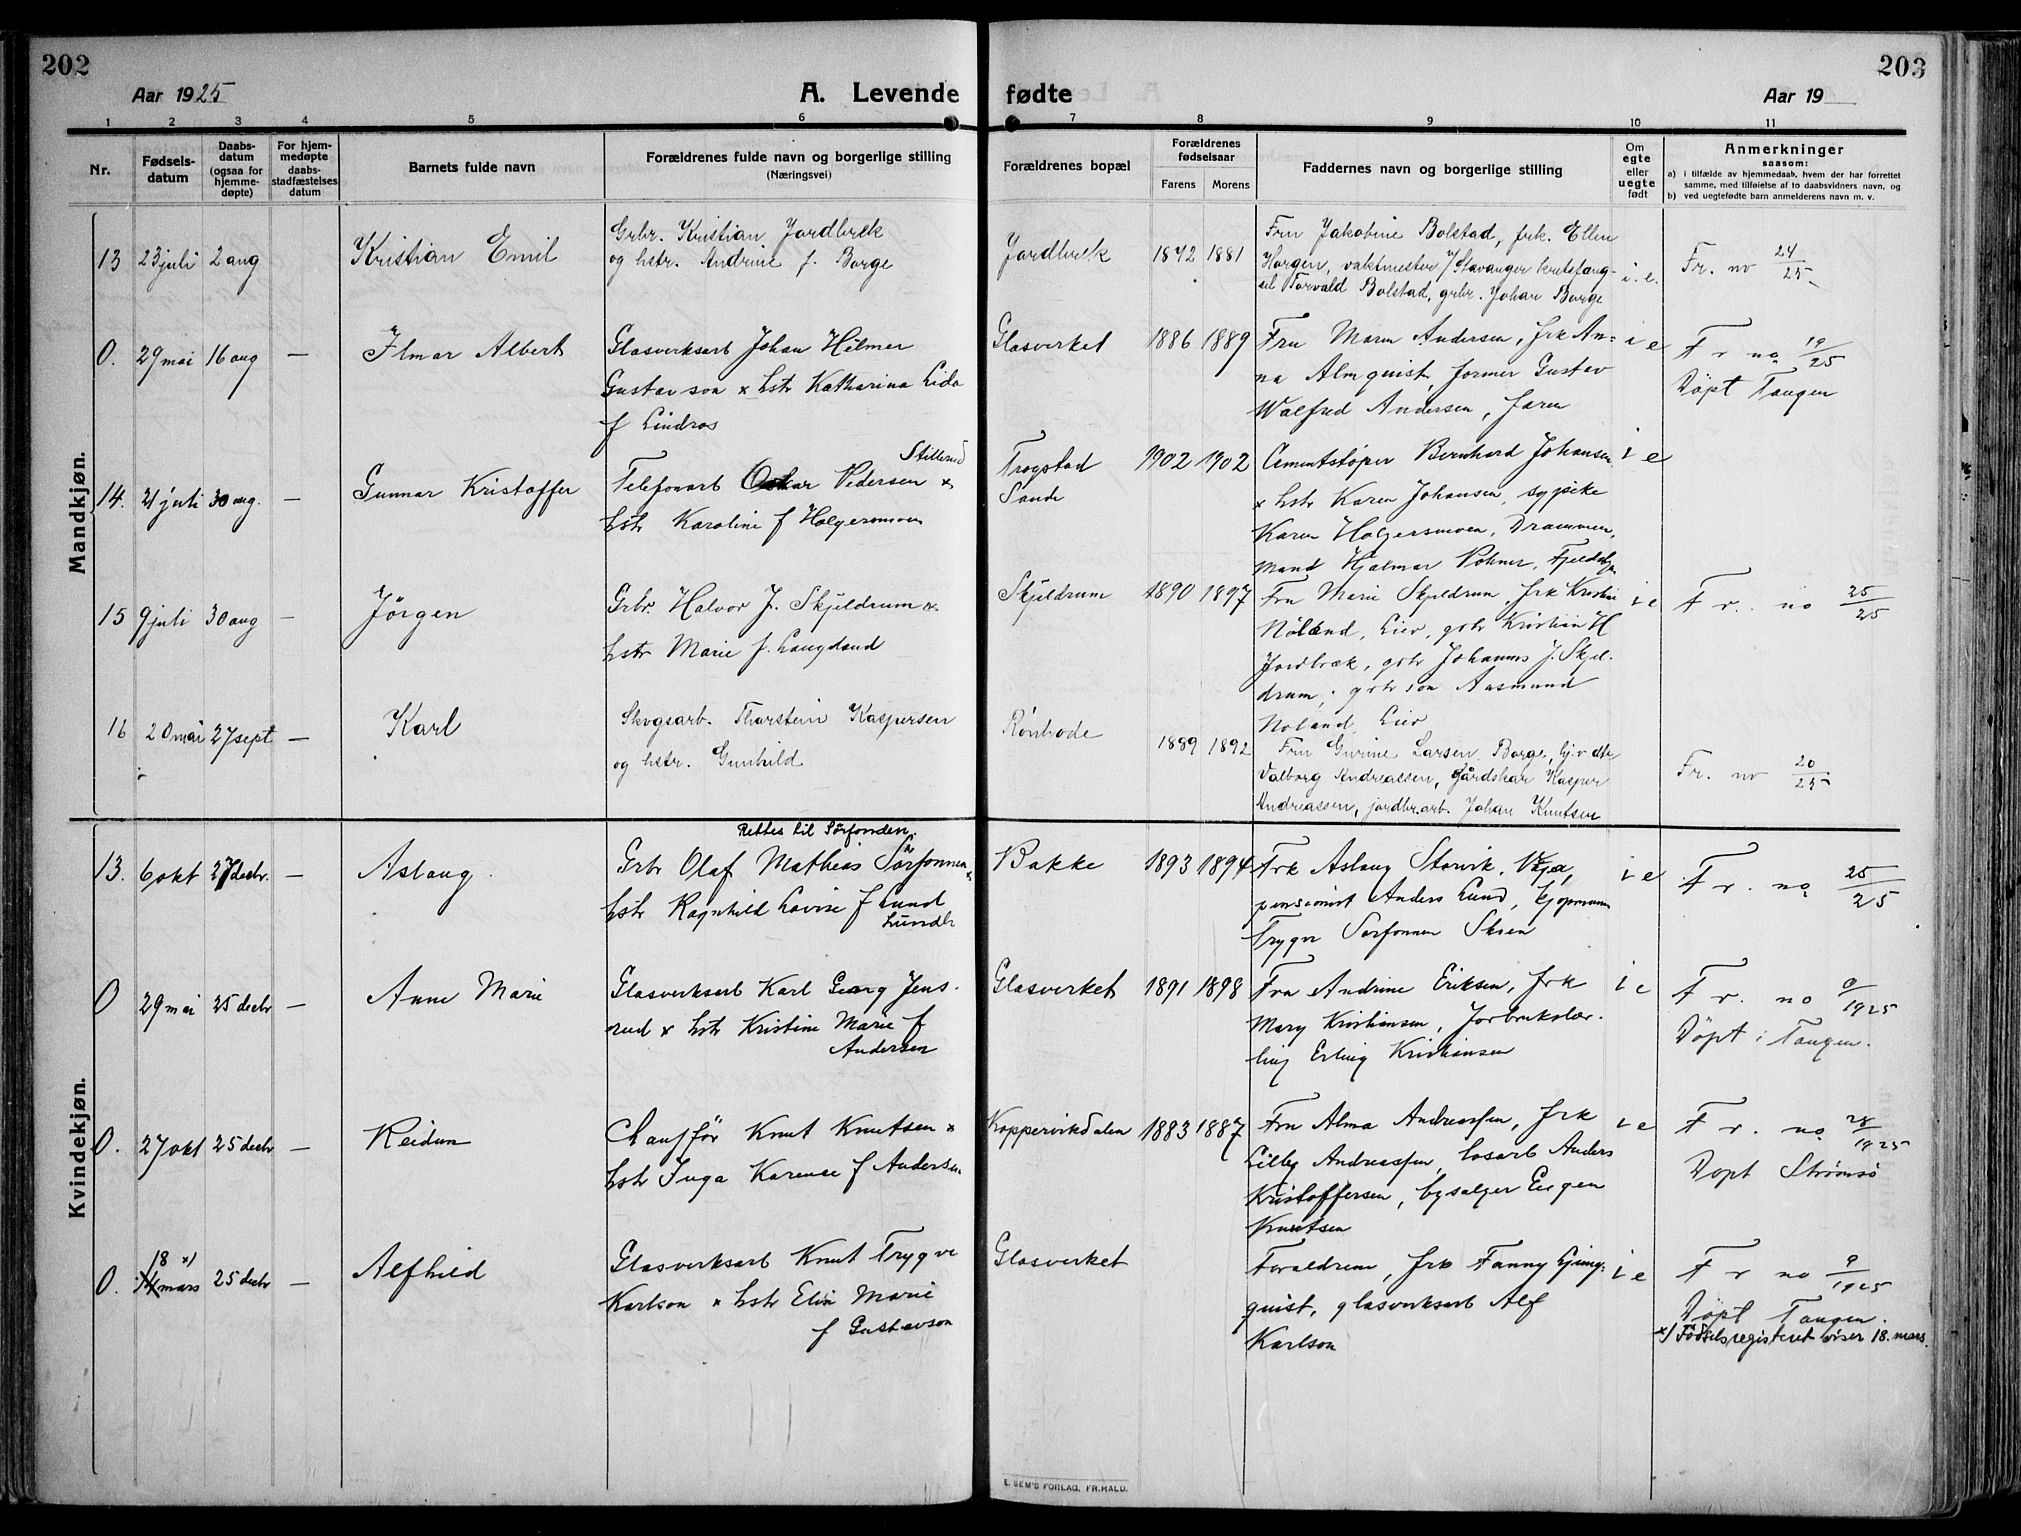 202
203
Aar 1925
A. Levende fødte
Aar 19
1 2 3 4 5 6 7 8 9 10 11
Nr.
Fødsels-
datum
Daabs-
datum
(ogsaa for
hjemme-
døpte)
For hjem-
medøpte
daabs-
stadfæstelses
datum
Barnets fulde navn
Forældrenes fulde navn og borgerlige stilling
(Næringsvei)
Forældrenes bopæl
Forældrenes
fødselsaar
Farens Morens
Faddernes navn og borgerlige stilling
Om
egte
eller
uegte
født
Anmerkninger
saasom:
a) i tilfælde av hjemmedaab, hvem der har forrettet
samme, med tilføielse af to daabsvidners navn, og
b) ved uegtefødte barn anmelderens navn m. v.
Mandkjøn.
13 23 juli 2 aug
Kristian Emil
Grbr. Kristian Jordbræk
og hstr. Andrine f. Borge
Jordbræk
1872 1881
Fru Jakobine Bolstad, frk. Ellen
Horgen, vaktmester v/Stavanger kretsfæng-
sel Torvald Bolstad, grbr. Johan Borge
i. e.
Fr. no 24/25
0. 29 mai 16 aug —
Ilmar Albert
Glasverksarb Johan Hilmer
Gustavson x hstr Katharina Lida
f Lindros
Glasverket
1886 1889
Fru Maren Andersen, frk An-
na Almquist, former Gustav
Walfred Andersen, faren
i e
Fr no 19/25
Döpt Tangen
14. 21 juli 30 aug. —
Gunnar Kristoffer
Stillerud
Telefonarb Oskar Pedersen x
hstr Karoline f Holgersmoen
Trogstad
Sande
1902 1902
Cementstöper Bernhard Johansen
x hstr Karen Johansen, sypike
Karen Holgersmoen, Drammen,
mand Hjalmar
i e
15 9 juli 30 aug —
Jörgen
Grbr. Halvor J. Skjeldrum x
hstr Marie f. Langdand
Skjeldrum
1890 1897
Fru Marie Skjeldrum, frk Kristine
Nöland, Lier, gbr Kristian H
Jordbræk, gbr Johannes J. Skjel-
drum, gbr sön Aasmund
Noland, Lier
i e
Fr. no 25/25
16 20 mai 27 sept —
Karl
Skogsarb. Thorstein Kaspersen
og hstr. Gunhild
Rönhode
1889 1892
Fru Gurine Larsen Borge, hj.v. dtr
Valborg Andreassen, gårdskar Kasper
Andreassen, jordbr.arb. Johan Knutsen
Fr. no 20/25
Kvindekjøn.
13. 6 okt 27 decbr. —
Aslaug.
Rettes til Sörfonden.
Grbr Olaf Mathias Sörfonnen x
hstr Ragnhild Lovise f Lund
Lunde
Bakke
1893 1894
Frk Aslaug Storvik,
pensionist Anders Lund, kjöpmann
Trygve Sorfonnen Skien
i e
Fr. no 25/25
0 29 mai 25 decbr —
Anne Marie
Glasverksarb Karl Georg Jens-
rud x hstr Kristine Marie f
Andersen
Glasverket
1891 1898
Fru Andrine Eriksen, Frk
Mary Kristiansen, Jorbrukslær-
ling Erling Kristiansen
i e
Fr. no 9/1925
Döpt i Tangen.
0. 27 okt 25 decbr —
Reidun
Chaufför Knut Knutsen x
hstr Inga Karense f Andersen
Koppervikdalen
1883 1887
Fru Alma Andreassen, frk
Lilly Andreassen, losarb Anders
Kristoffersen, bysælger Eugen
Knutsen
i e
Fr. no 28/1925
Döpt Strömsö
0. 18 x)
14 mars 25 decbr —
Alfhild
Glasverksarb Knut Trygve
Karlson x hstr Elin Marie
f Gustavson
Glasverket
Foraldrene, frk Fanny Ljung-
quist, glasverksarb Alf
Karlson
i e
Fr no 9/1925
Döpt Tangen.
x) Födselsregisteret viser 18. mars.
E. SEM'S FORLAG, FR.HALD.